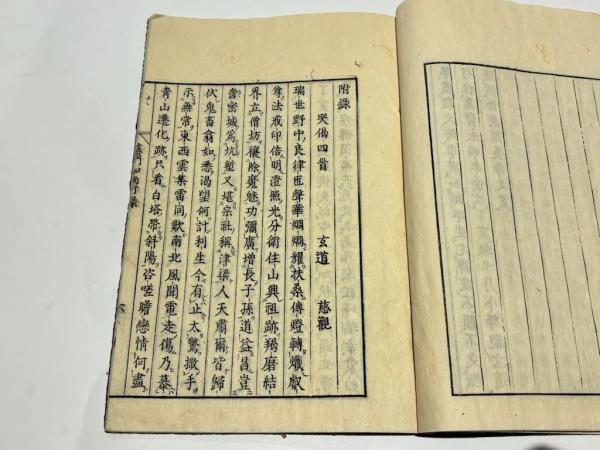 附錄
哭偈四首　　玄道　慈觀
瑞世野中良律匠聲華烱烱耀扶桑傳燈轉熾叡
尊法戒印倍明澄照光分衛住山興祖跡羯磨結
界立僧坊禳除魔魅功彌廣增長子孫道益昌豈
啻密城爲坑塹又堪宗社稱津梁人天肅爾皆歸
伏鬼畜翕如悉渴望何計利生今有止太驚撒手
示無常東西雲集雷同歎南北風聞電走傷乃墓
靑山遷化跡只看白塔帶斜陽咨嗟瞻戀情何盡